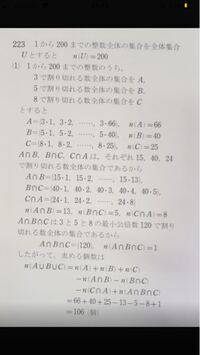 223 1から200までの整数全体の集合を全体集合
Uとすると n(U)=200
(1) 1から200までの整数のうち,
3で割り切れる数全体の集合をA,
5で割り切れる数全体の集合をB,
8で割り切れる数全体の集合をC
とすると
A={3·1, 3·2, ……, 3·66}, n(A)=66
B={5·1, 5·2, ……, 5·40}, n(B)=40
C={8·1, 8·2, ……, 8·25}, n(C)=25
A∩B, B∩C, C∩Aは, それぞれ 15, 40, 24
で割り切れる数全体の集合であるから
A∩B={15·1, 15·2, ……, 15·13},
B∩C={40·1, 40·2, 40·3, 40·4, 40·5},
C∩A={24·1, 24·2, ……, 24·8}
n(A∩B)=13, n(B∩C)=5, n(C∩A)=8
A∩B∩Cは3と5と8の最小公倍数120で割り
切れる数全体の集合であるから
A∩B∩C={120}, n(A∩B∩C)=1
したがって, 求める個数は
n(A∪B∪C)=n(A)+n(B)+n(C)
−n(A∩B)−n(B∩C)
−n(C∩A)+n(A∩B∩C)
=66+40+25−13−5−8+1
=106 (個)